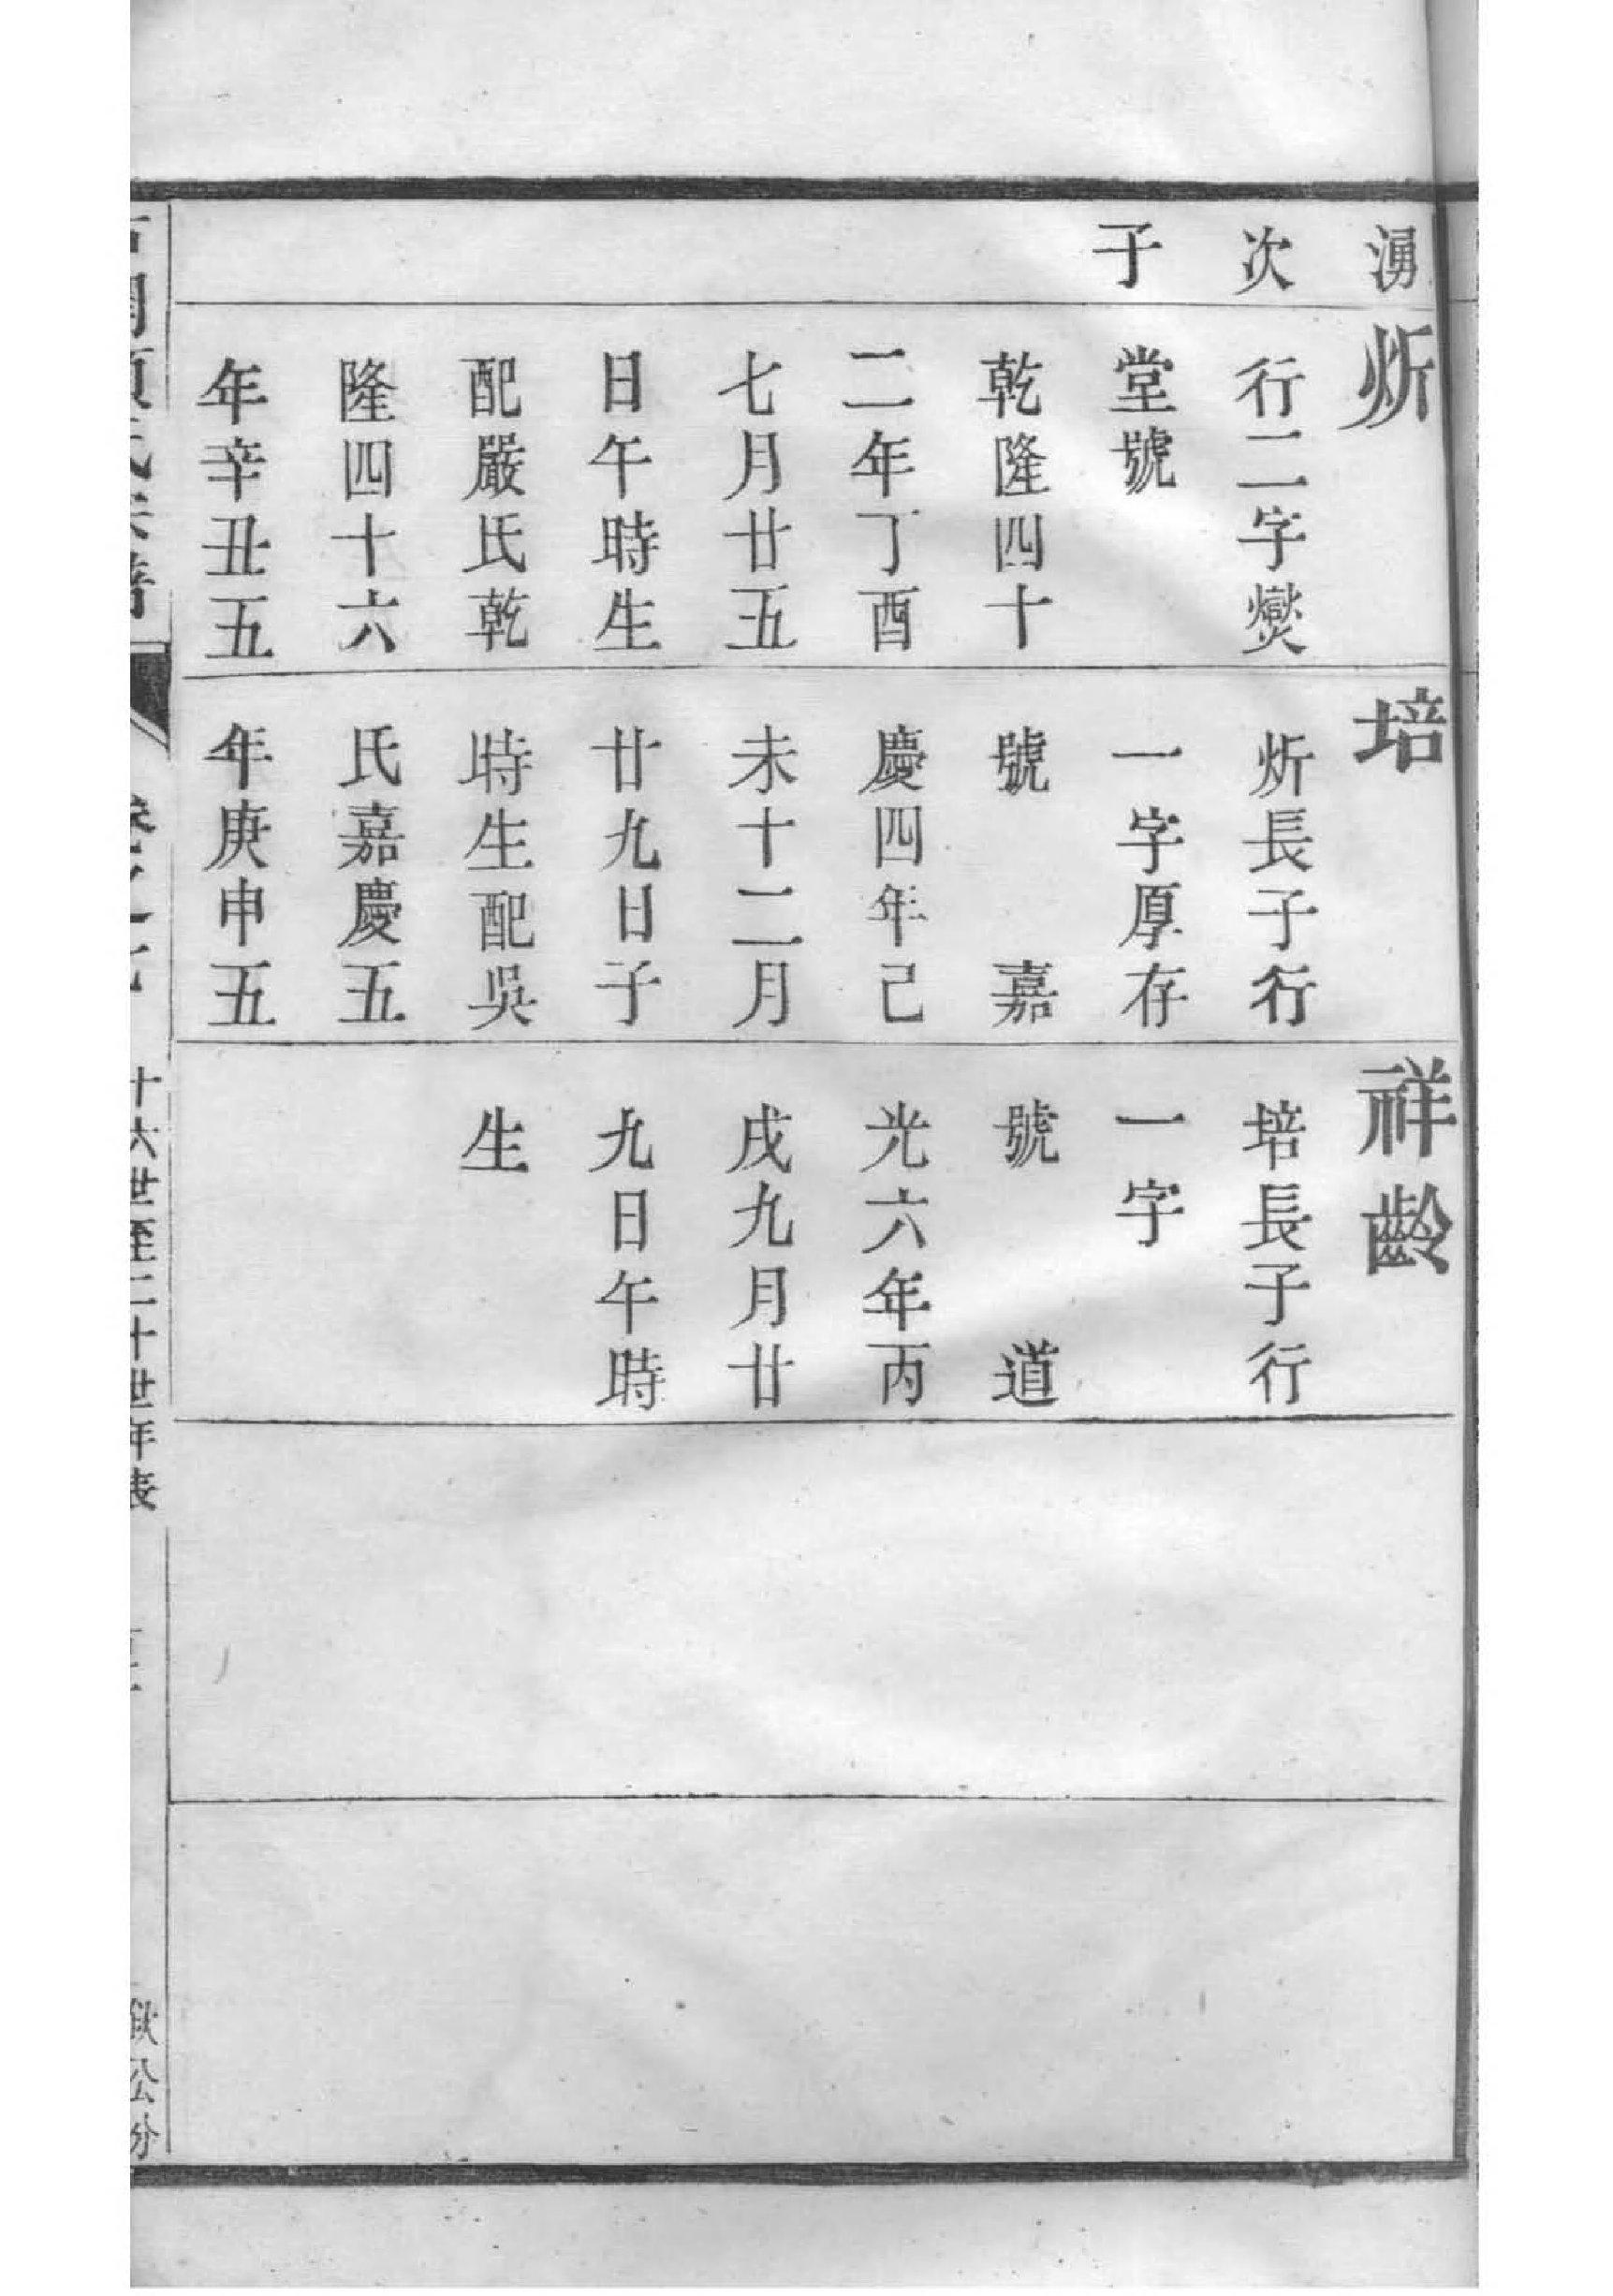 湧
次
子
炘
行二字爕
堂號
乾隆四十
二年丁酉
七月廿五
日午時生
配嚴氏乾
隆四十六
年辛丑五
培
炘長子行
一字厚存
號　嘉
慶四年己
未十二月
廿九日子
時生配吳
氏嘉慶五
年庚申五
祥齡
培長子行
一字
號　道
光六年丙
戌九月廿
九日午時
生
十六世至二十世年表
欽公分